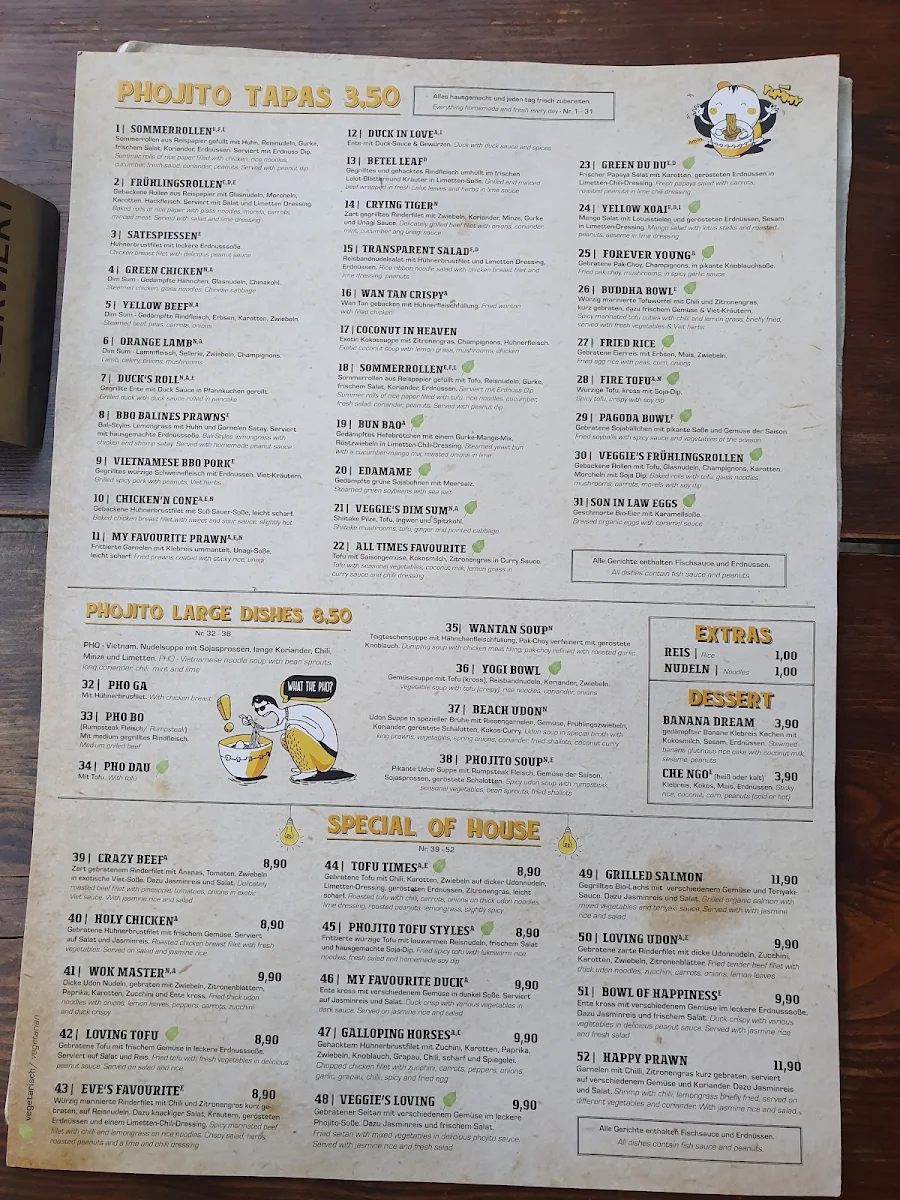 PHOJITO TAPAS 3,50
Alles hausgemacht und jeden tag frisch zubereiten
Everything homemade and fresh every day - Nr. 1 - 31
YUMMY
1| SOMMERROLLEN E,F,L
Sommerrollen aus Reispapier gefüllt mit Huhn, Reisnudeln, Gurke,
frischem Salat, Koriander, Erdnüssen. Serviert mit Erdnuss Dip.
Summer rolls of rice paper filled with chicken, rice noodles,
cucumber, fresh salad, coriander, peanuts. Served with peanut dip
2| FRÜHLINGSROLLEN C,D,E
Gebackene Rollen aus Reispapier mit Glasnudeln, Morcheln,
Karotten, Hackfleisch. Serviert mit Salat und Limetten Dressing.
Baked rolls of rice paper with glass noodles, morels, carrots,
minced meat. Served with salad and lime dressing
3| SATESPIESSEN E
Hühnerbrustfilet mit leckere Erdnusssoße.
Chicken breast filet with delicious peanut sauce
4| GREEN CHICKEN N,A
Dim Sum - Gedämpfte Hähnchen, Glasnudeln, Chinakohl.
Steamed chicken, glass noodles, Chinese cabbage
5| YELLOW BEEF N,A
Dim Sum - Gedämpfte Rindfleisch, Erbsen, Karotten, Zwiebeln.
Steamed beef, peas, carrots, onions
6| ORANGE LAMB N,A
Dim Sum - Lammfleisch, Sellerie, Zwiebeln, Champignons.
Lamb, celery, onions, mushrooms
7| DUCK'S ROLL N,A,E
Gegrillte Ente mit Duck Sauce in Pfannkuchen gerollt.
Grilled duck with duck sauce rolled in pancake
8| BBQ BALINES PRAWNS E
Bali-Styles Lemongrass mit Huhn und Garnelen Satay. Serviert
mit hausgemachte Erdnusssoße. Bali-Styles lemongrass with
chicken and shrimp satay. Served with homemade peanut sauce
9| VIETNAMESE BBQ PORK E
Gegrilltes würzige Schweinefleisch mit Erdnüssen, Viet-Kräutern.
Grilled spicy pork with peanuts, Viet herbs
10| CHICKEN'N CONE A,E,N
Gebackene Hühnerbrustfilet mit Süß-Sauer-Soße, leicht scharf.
Baked chicken breast filet with sweet and sour sauce, slightly hot
11| MY FAVOURITE PRAWN A,E,N
Frittierte Garnelen mit Klebreis ummantelt, Unagi-Soße,
leicht scharf. Fried prawns coated with sticky rice, unagi
12| DUCK IN LOVE A,L
Ente mit Duck-Sauce & Gewürzen. Duck with duck sauce and spices
13| BETEL LEAF D
Gegrilltes und gehacktes Rindfleisch umhüllt im frischen
Lolot-Blatt und Kräuter in Limetten-Soße. Grilled and minced
beef wrapped in fresh Lolot leaves and herbs in lime sauce
14| CRYING TIGER N
Zart gegrilltes Rinderfilet mit Zwiebeln, Koriander, Minze, Gurke
und Unagi Sauce. Delicately grilled beef fillet with onions, coriander,
mint, cucumber and unagi sauce
15| TRANSPARENT SALAD E,D
Reisbandnudelsalat mit Hühnerbrustfilet und Limetten Dressing,
Erdnüssen. Rice ribbon noodle salad with chicken breast filet and
lime dressing, peanuts
16| WAN TAN CRISPY A
Wan Tan gebacken mit Hühnerfleischfüllung. Fried wonton
with fried chicken
17|COCONUT IN HEAVEN
Exotic Kokossuppe mit Zitronengras, Champignons, Hühnerfleisch.
Exotic coconut soup with lemon grass, mushrooms, chicken
18| SOMMERROLLEN E,F,L
Sommerrollen aus Reispapier gefüllt mit Tofu, Reisnudeln, Gurke,
frischem Salat, Koriander, Erdnüssen. Serviert mit Erdnuss Dip
Summer rolls of rice paper filled with tofu, rice noodles, cucumber,
fresh salad, coriander, peanuts. Served with peanut dip
19| BUN BAO A
Gedämpftes Hefebrötchen mit einem Gurke-Mango-Mix,
Röstzwiebeln in Limetten-Chili-Dressing. Steamed yeast bun
with a cucumber-mango mix, roasted onions in lime
20| EDAMAME
Gedämpfte grüne Sojabohnen mit Meersalz.
Steamed green soybeans with sea salt
21| VEGGIE'S DIM SUM N,A
Shiitake Pilze, Tofu, Ingwer und Spitzkohl.
Shiitake mushrooms, tofu, ginger and pointed cabbage
22| ALL TIMES FAVOURITE
Tofu mit Saisongemüse, Kokosmilch, Zitronengras in Curry Sauce.
Tofu with seasonal vegetables, coconut milk, lemon grass in
curry sauce and chili dressing
23| GREEN DU DU E,D
Frischer Papaya Salat mit Karotten, gerösteten Erdnüssen in
Limetten-Chili-Dressing. Fresh papaya salad with carrots,
roasted peanuts in lime chili dressing
24| YELLOW XOAI E,D,L
Mango Salat mit Lotusstielen und gerösteten Erdnüssen, Sesam
in Limetten-Dressing. Mango salad with lotus stalks and roasted
peanuts, sesame in lime dressing
25| FOREVER YOUNG A
Gebratene Pak-Choy, Champignons, in pikante Knoblauchsoße.
Fried pak choy, mushrooms, in spicy garlic sauce
26| BUDDHA BOWL E
Würzig marinierte Tofuwürfel mit Chili und Zitronengras,
kurz gebraten, dazu frischem Gemüse & Viet-Kräutern.
Spicy marinated tofu cubes with chili and lemon grass, briefly fried,
served with fresh vegetables & Viet herbs
27| FRIED RICE
Gebratene Eierreis mit Erbsen, Mais, Zwiebeln.
Fried egg rice with peas, corn, onions
28| FIRE TOFU A,N
Würzige Tofu, kross mit Soja-Dip.
Spicy tofu, crispy with soy dip
29| PAGODA BOWL F
Gebratene Sojabällchen mit pikante Soße und Gemüse der Saison.
Fried soyballs with spicy sauce and vegetables of the season
30| VEGGIE'S FRÜHLINGSROLLEN
Gebackene Rollen mit Tofu, Glasnudeln, Champignons, Karotten,
Morcheln mit Soja Dip. Baked rolls with tofu, glass noodles,
mushrooms, carrots, morels with soy dip
31|SON IN LAW EGGS
Geschmorte Bio-Eier mit Karamellsoße.
Braised organic eggs with caramel sauce
Alle Gerichte enthalten Fischsauce und Erdnüssen.
All dishes contain fish sauce and peanuts.
PHOJITO LARGE DISHES 8,50
Nr. 32 - 38
PHO - Vietnam. Nudelsuppe mit Sojasprossen, lange Koriander, Chili,
Minze und Limetten. PHO - Vietnamese noodle soup with bean sprouts,
long coriander, chili, mint and lime
32| PHO GA
Mit Hühnerbrustfilet. With chicken breast
33| PHO BO
(Rumpsteak Fleisch/ Rumpsteak)
Mit medium gegrilltes Rindfleisch.
Medium grilled beef
34| PHO DAU
Mit Tofu. With tofu
WHAT THE PHO?
35| WANTAN SOUP N
Teigtaschensuppe mit Hähnchenfleischfüllung, Pak-Choy verfeinert mit geröstete
Knoblauch. Dumpling soup with chicken meat filling, pak-choy refined with roasted garlic
36| YOGI BOWL
Gemüsesuppe mit Tofu (kross), Reisbandnudeln, Koriander, Zwiebeln.
Vegetable soup with tofu (crispy), rice noodles, coriander, onions
37| BEACH UDON N
Udon Suppe in spezieller Brühe mit Riesengarnelen, Gemüse, Frühlingszwiebeln,
Koriander, geröstete Schalotten, Kokos-Curry. Udon soup in special broth with
king prawns, vegetables, spring onions, coriander, fried shallots, coconut curry
38| PHOJITO SOUP N,E
Pikante Udon Suppe mit Rumpsteak Fleisch, Gemüse der Saison,
Sojasprossen, geröstete Schalotten. Spicy udon soup with rumpsteak,
seasonal vegetables, bean sprouts, fried shallots
EXTRAS
REIS | Rice 1,00
NUDELN | Noodles 1,00
DESSERT
BANANA DREAM 3,90
gedämpfter Banane Klebreis Kuchen mit
Kokosmilch, Sesam, Erdnüssen. Steamed
banana glutinous rice cake with coconut milk,
sesame, peanuts
CHE NGO E (heiß oder kalt) 3,90
Klebreis, Kokos, Mais, Erdnüssen. Sticky
rice, coconut, corn, peanuts (cold or hot)
SPECIAL OF HOUSE
Nr. 39 - 52
39| CRAZY BEEF A 8,90
Zart gebratenem Rinderfilet mit Ananas, Tomaten, Zwiebeln
in exotische Viet-Soße. Dazu Jasminreis und Salat. Delicately
roasted beef filet with pineapple, tomatoes, onions in exotic
Viet sauce. With jasmine rice and salad
40| HOLY CHICKEN A 8,90
Gebratene Hühnerbrustfilet mit frischem Gemüse. Serviert
auf Salat und Jasminreis. Roasted chicken breast filet with fresh
vegetables. Served on salad and jasmine rice
41| WOK MASTER N,A 9,90
Dicke Udon Nudeln, gebraten mit Zwiebeln, Zitronenblättern,
Paprika, Karotten, Zucchini und Ente kross. Fried thick udon
noodles with onions, lemon leaves, peppers, carrots, zucchini
and duck crispy
42| LOVING TOFU 8,90
Gebratene Tofu mit frischem Gemüse in leckere Erdnusssoße.
Serviert auf Salat und Reis. Fried tofu with fresh vegetables in delicious
peanut sauce. Served on salad and rice
43| EVE'S FAVOURITE E 8,90
Würzig marinierte Rinderfilet mit Chili und Zitronengras kurz ge-
braten, auf Reisnudeln. Dazu knackiger Salat, Kräutern, gerösteten
Erdnüssen und einem Limetten-Chili-Dressing. Spicy marinated beef
fillet with chili and lemongrass on rice noodles. Crispy salad, herbs,
roasted peanuts and a lime and chili dressing
44| TOFU TIMES A,E 8,90
Gebratene Tofu mit Chili, Karotten, Zwiebeln auf dicke Udonnudeln,
Limetten-Dressing, gerösteten Erdnüssen, Zitronengras, leicht
scharf. Roasted tofu with chili, carrots, onions on thick udon noodles,
lime dressing, roasted peanuts, lemongrass, slightly spicy
45| PHOJITO TOFU STYLES A 8,90
Frittierte würzige Tofu mit lauwarmen Reisnudeln, frischem Salat
und hausgemachte Soja-Dip. Fried spicy tofu with lukewarm rice
noodles, fresh salad and homemade soy dip
46| MY FAVOURITE DUCK A 9,90
Ente kross mit verschiedenem Gemüse in dunkel Soße. Serviert
auf Jasminreis und Salat. Duck crisp with various vegetables in
dark sauce. Served on jasmine rice and salad
47| GALLOPING HORSES A,C 9,90
Gehacktem Hühnerbrustfilet mit Zuchini, Karotten, Paprika,
Zwiebeln, Knoblauch, Grapau, Chili, scharf und Spiegelei.
Chopped chicken fillet with zucchini, carrots, peppers, onions,
garlic, grapau, chilli, spicy and fried egg
48| VEGGIE'S LOVING 9,90
Gebratener Seitan mit verschiedenem Gemüse im leckere
Phojito-Soße. Dazu Jasminreis und frischem Salat.
Fried seitan with mixed vegetables in delicious phojito sauce.
Served with jasmine rice and fresh salad
49| GRILLED SALMON 11,90
Gegrilltes Bio-Lachs mit verschiedenem Gemüse und Teriyaki-
Sauce. Dazu Jasminreis und Salat. Grilled organic salmon with
mixed vegetables and teriyaki sauce. Served with with jasmine
rice and salad
50| LOVING UDON A,E 9,90
Gebratene zarte Rinderfilet mit dicke Udonnudeln, Zucchini,
Karotten, Zwiebeln, Zitronenblätter. Fried tender beef fillet with
thick udon noodles, zucchini, carrots, onions, lemon leaves
51| BOWL OF HAPPINESS E 9,90
Ente kross mit verschiedenem Gemüse im leckere Erdnusssoße.
Dazu Jasminreis und frischem Salat. Duck crispy with various
vegetables in delicious peanut sauce. Served with jasmine rice
and fresh salad
52| HAPPY PRAWN 11,90
Garnelen mit Chilli, Zitronengras kurz gebraten, serviert
auf verschiedenem Gemüse und Koriander. Dazu Jasminreis
und Salat. Shrimp with chilli, lemongrass briefly fried, served on
different vegetables and coriander. With jasmine rice and salad
Alle Gerichte enthalten Fischsauce und Erdnüssen.
All dishes contain fish sauce and peanuts.
vegetarisch/ vegetarian